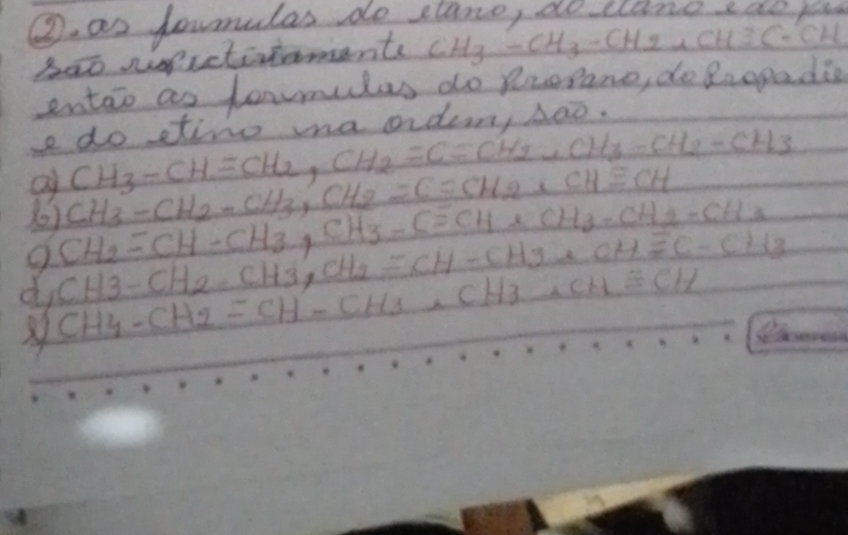 ②. as foumulas do etano, do etano e do
são respectivamente CH3 - CH3 - CH2 , CH≡C-CH
então as formulas do Propano, do Propadie
e do etino na ordem, são.
a) CH3-CH=CH2, CH2=C=CH2, CH3-CH2-CH3
b) CH3-CH2-CH3, CH2=C=CH2, CH≡CH
c) CH2=CH-CH3, CH3-C≡CH e CH3-CH2-CH3
d) CH3-CH2-CH3, CH2=CH-CH3 e CH≡C-CH3
e) CH4-CH2=CH-CH3, CH3, CH≡CH